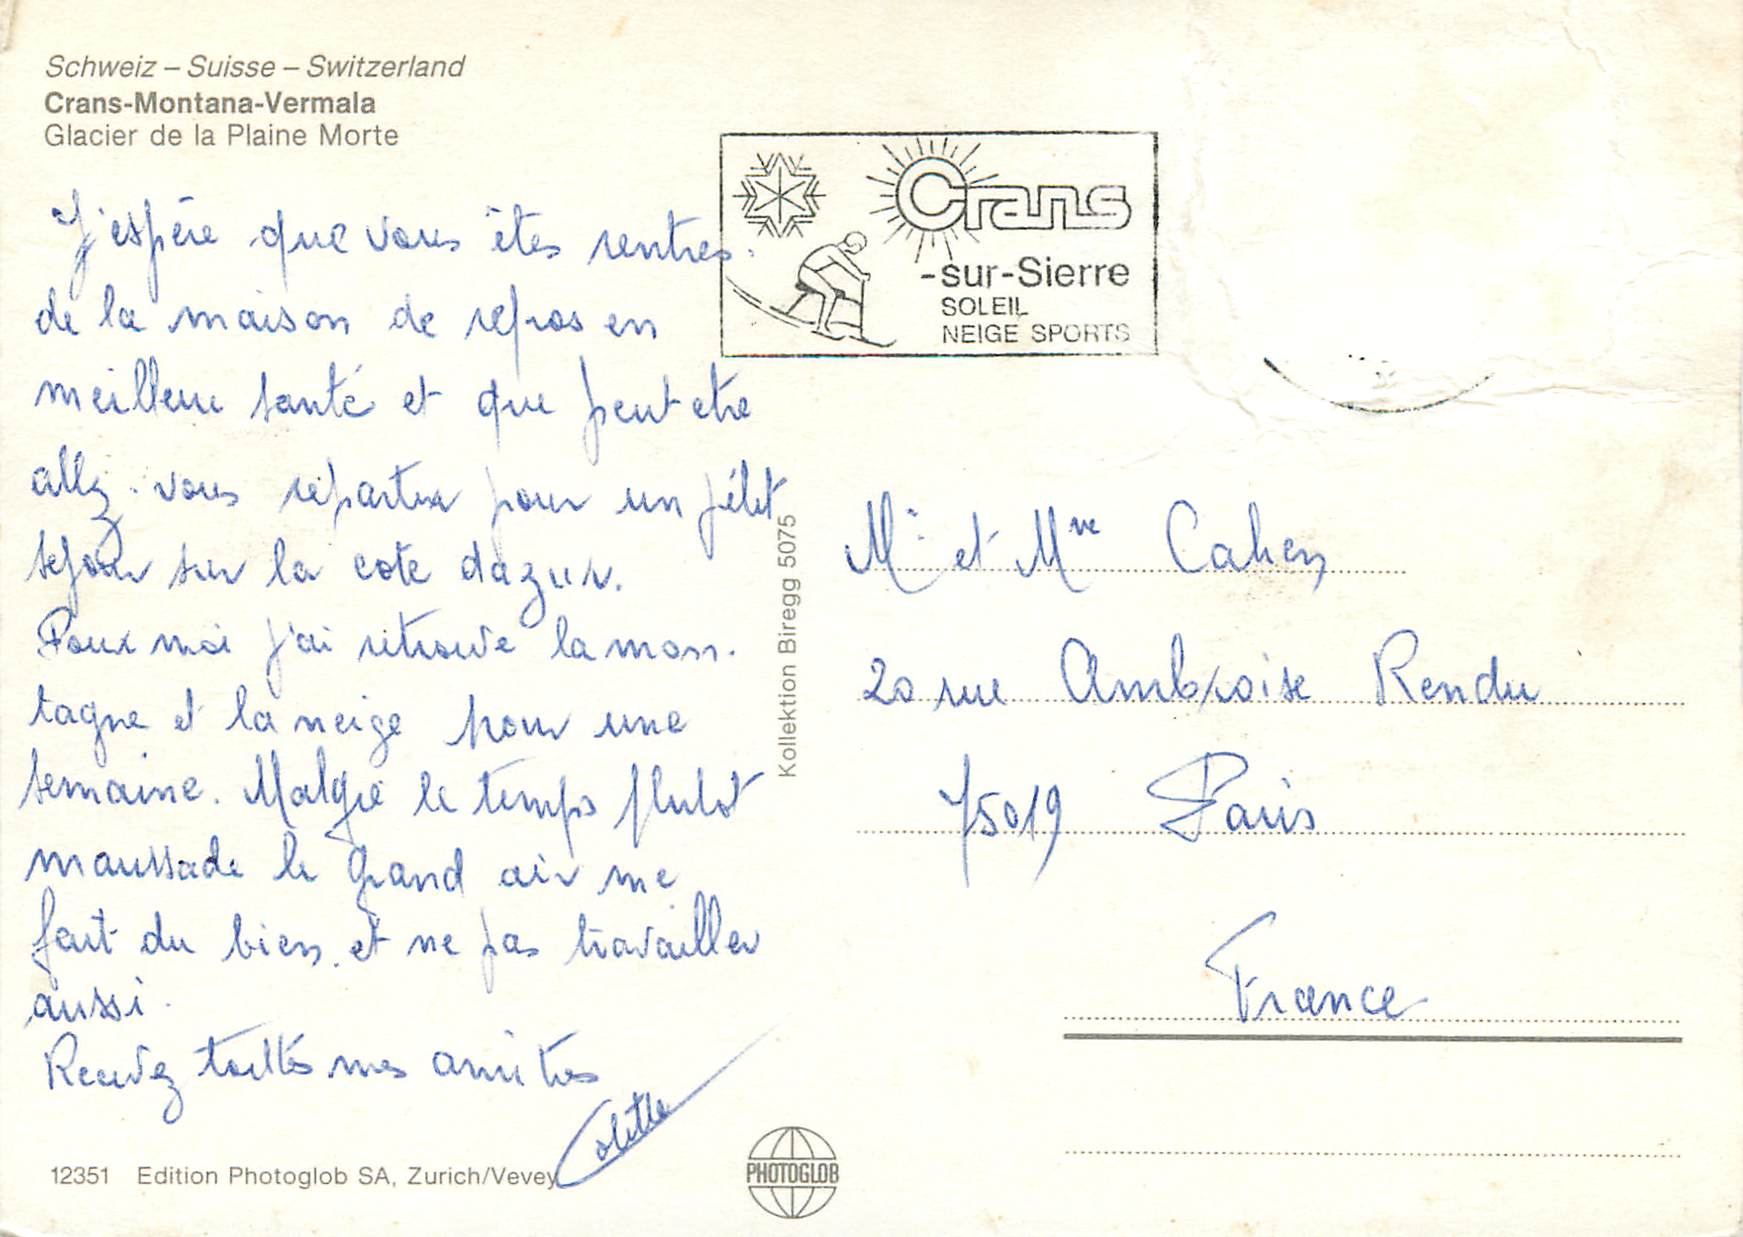 Schweiz – Suisse – Switzerland
Crans-Montana-Vermala
Glacier de la Plaine Morte
J'espère que vous êtes rentrés
de la maison de repos en
meilleure santé et que peut etre
allez vous repartir pour un pétit
sejour sur la cote dazur.
Pour moi j'ai retrouvé la mon-
tagne et la neige pour une
semaine. Malgré le temps plutot
maussade le grand air me
fait du bien et ne pas travailler
aussi.
Recevez toutes mes amitiés
Colette
12351 Edition Photoglob SA, Zurich/Vevey
Kollektion Biregg 5075
PHOTOGLOB
Crans
-sur-Sierre
SOLEIL
NEIGE SPORTS
Mr et Mme Cahen
20 rue Ambroise Rendu
75019 Paris
France